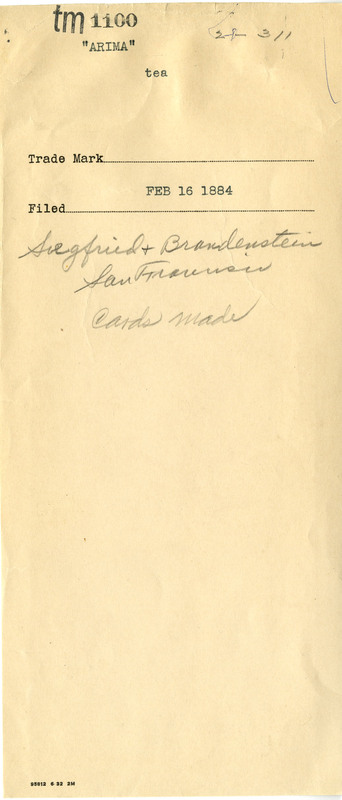 tm 1100
"ARIMA"
tea
Trade Mark
FEB 16 1884
Filed
Siegfried & Brandenstein
San Francisco
Cards made
95912 6-32 2M